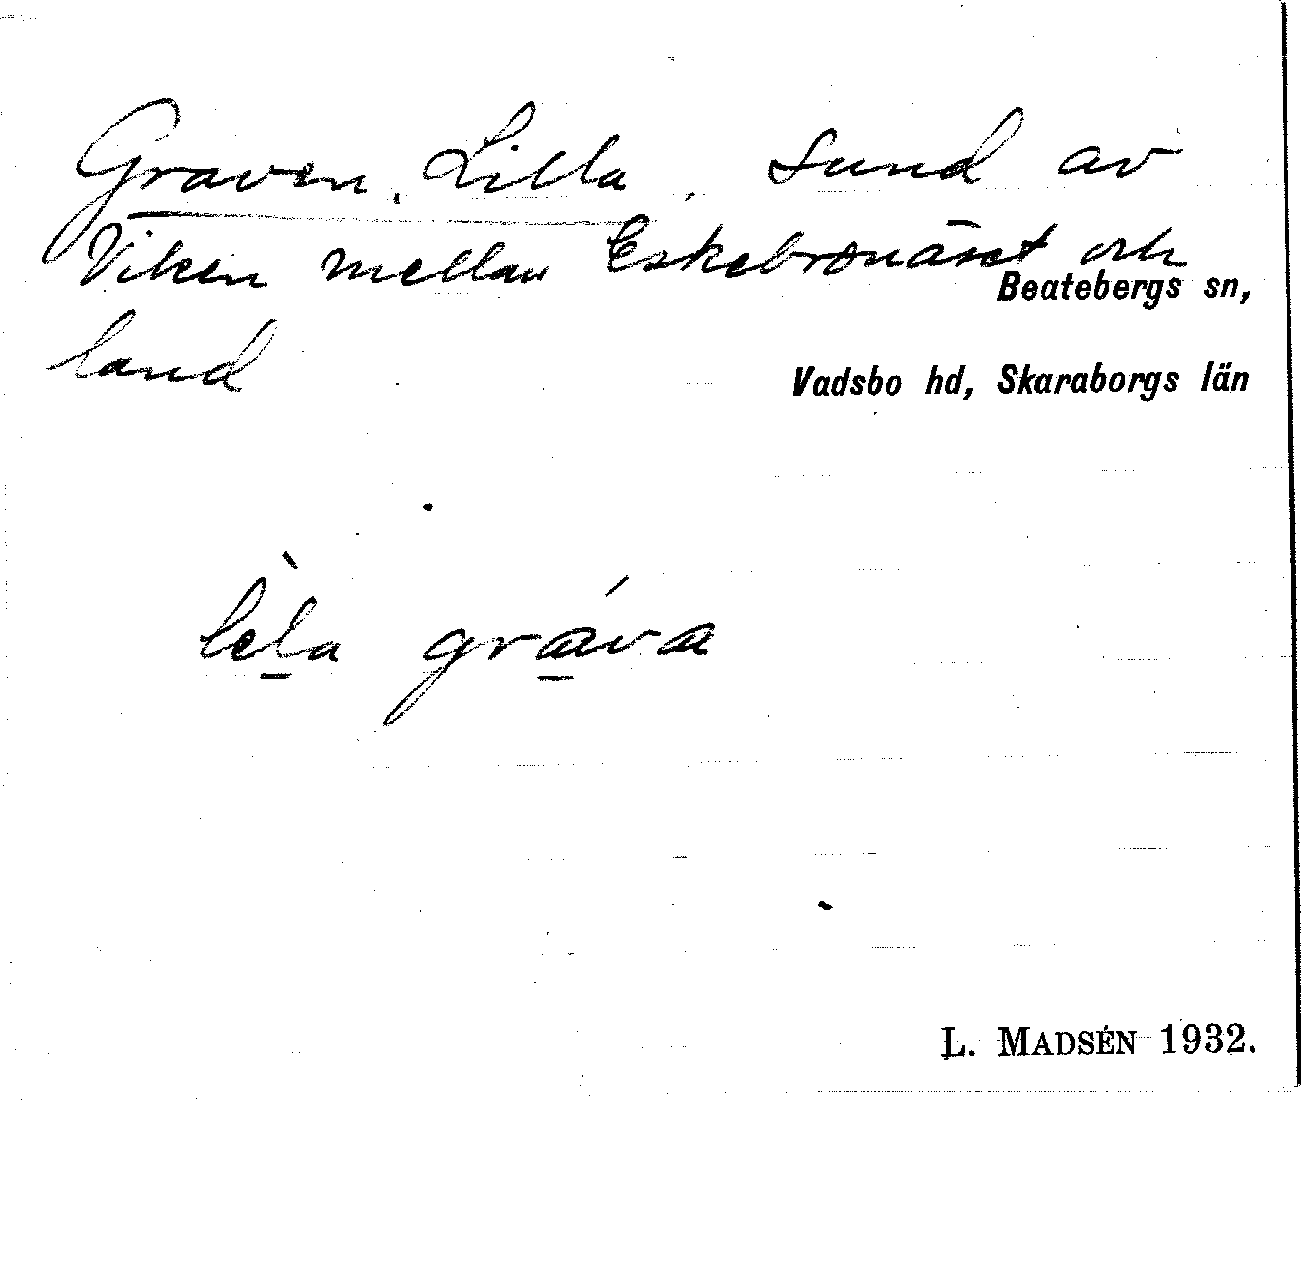 Graven, Lilla. Sund av
Viken mellan Eskebronäset och
Beatebergs sn,
land
Vadsbo hd, Skaraborgs län
lèla gráva
L. MADSÉN 1932.